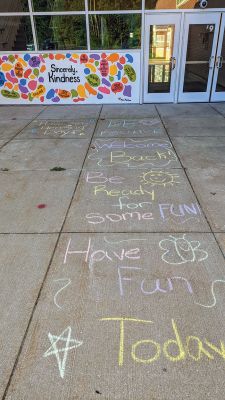 Sincerely,
Kindness
Welcome
Back!
Be
Ready
for
some FUN!
Have
Fun
Today